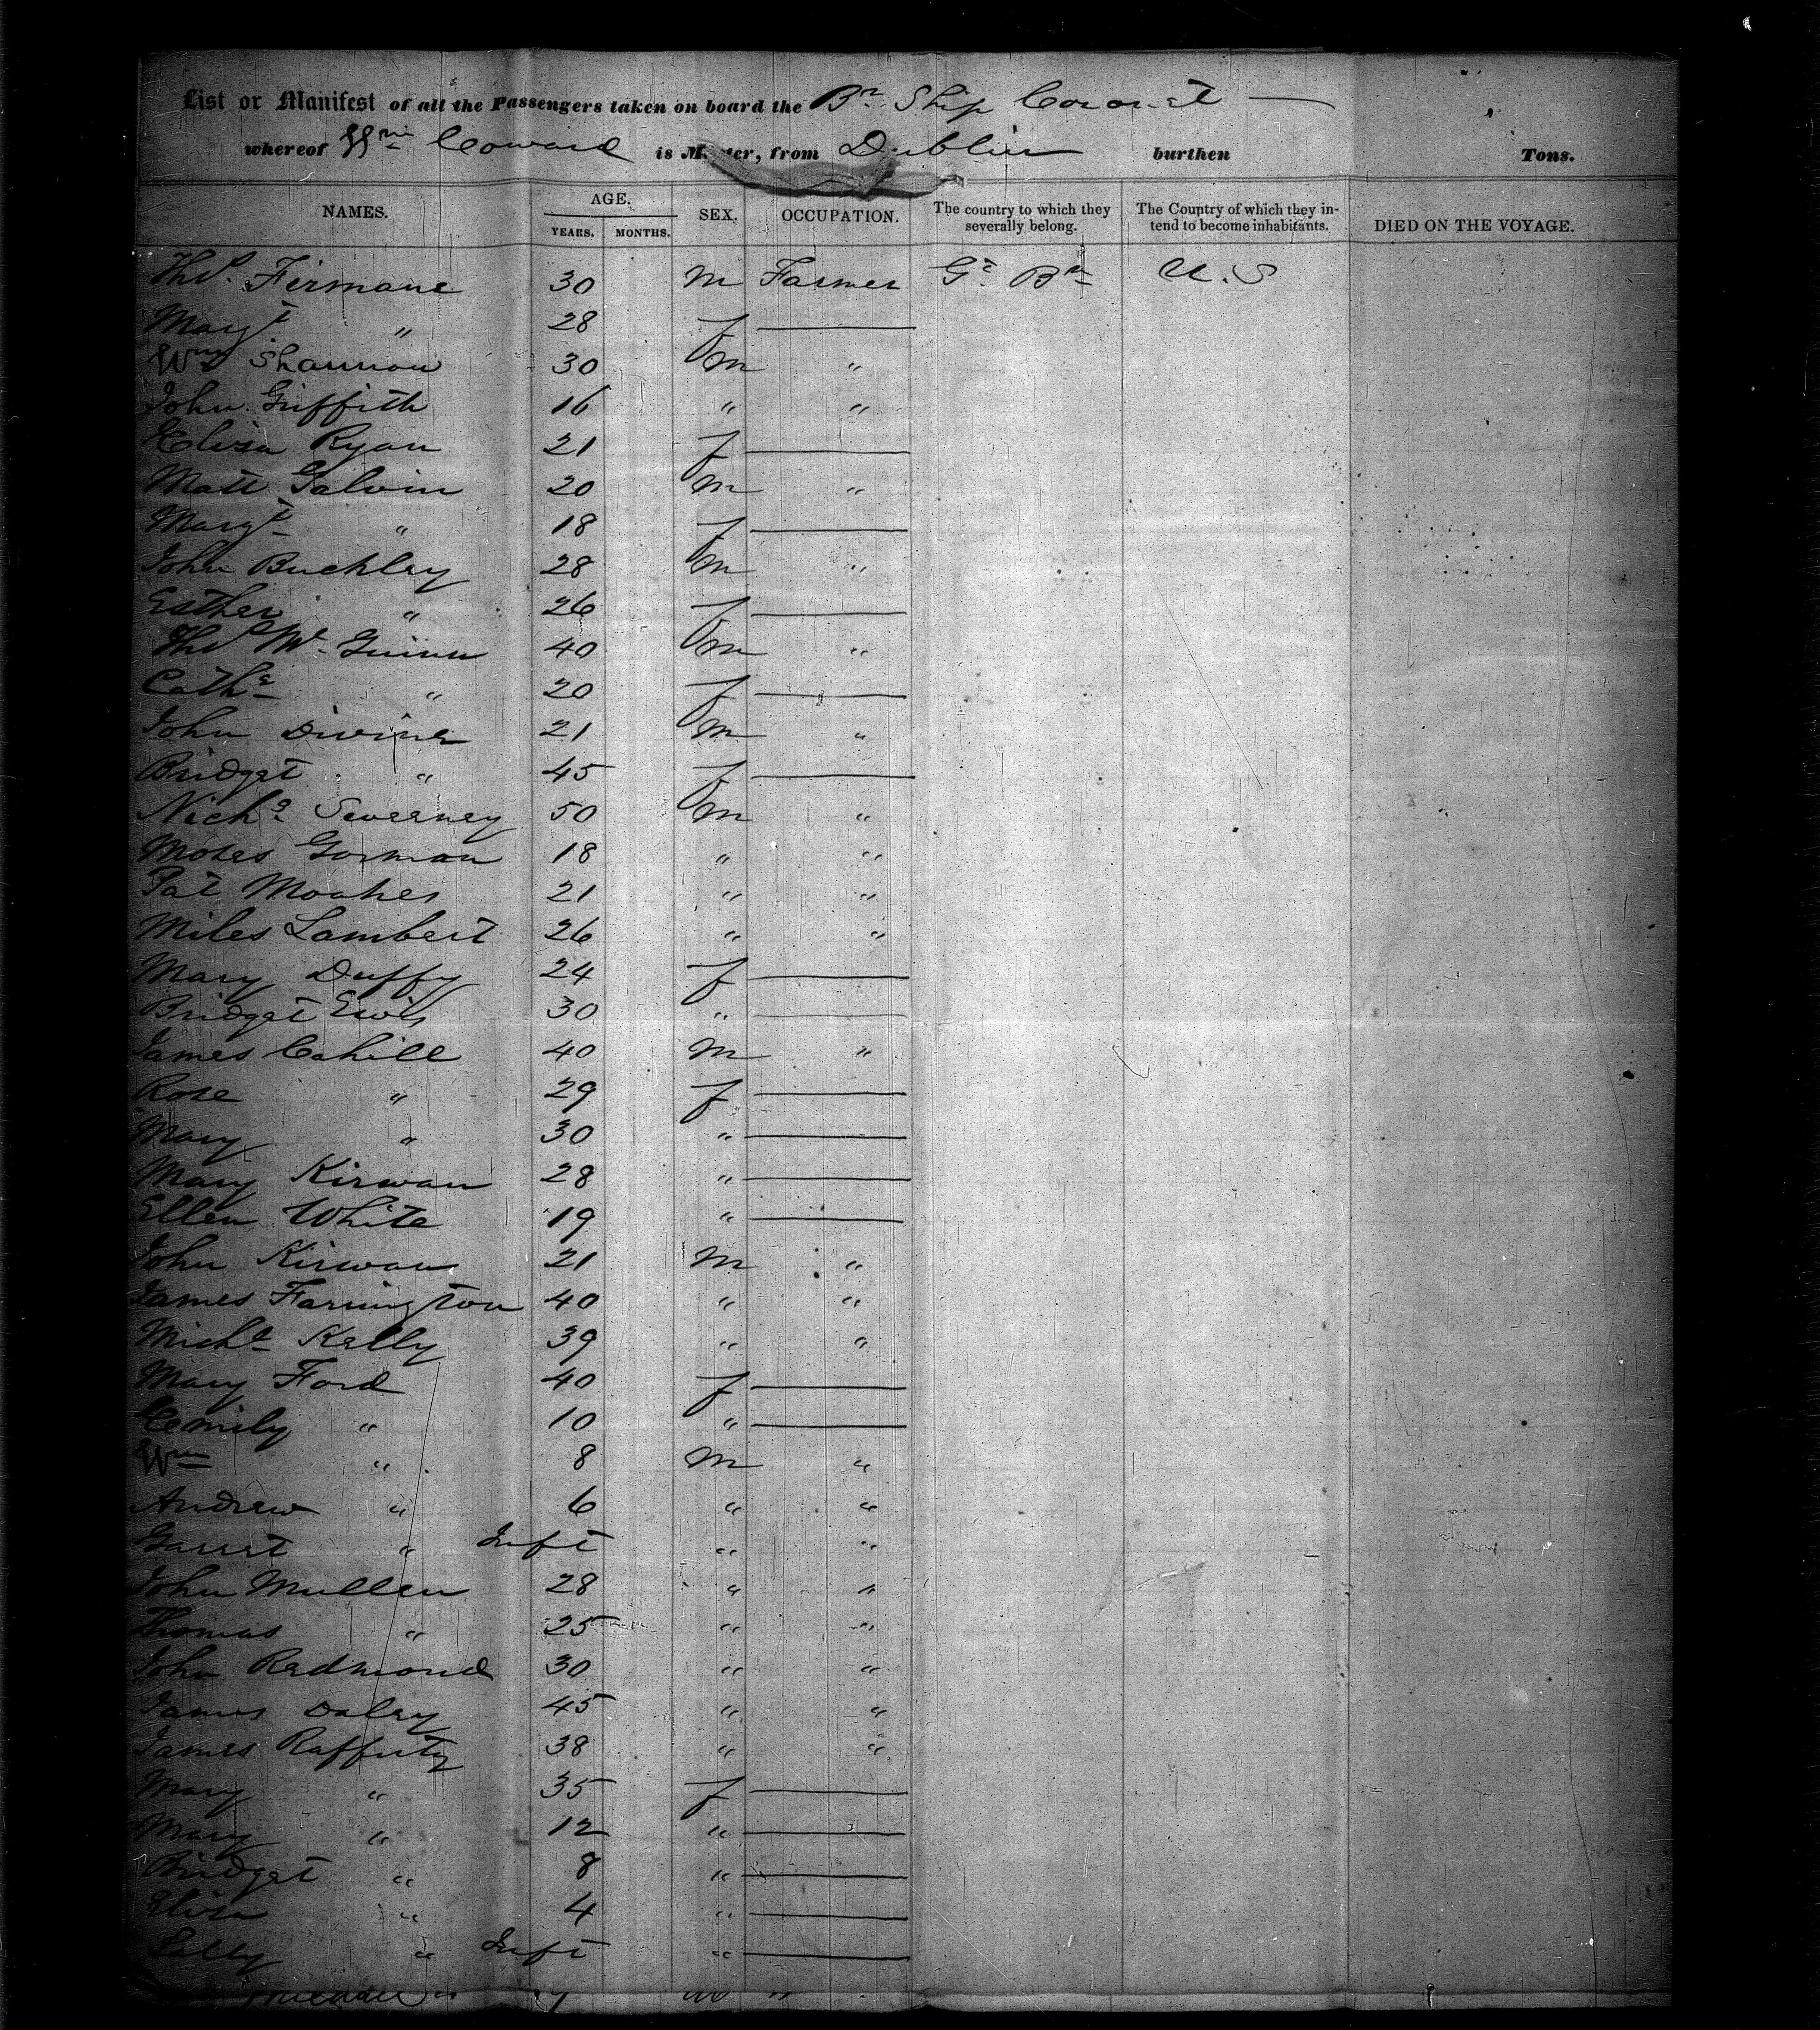 List or Manifest of all the Passengers taken on board the Br Ship Coronet
whereof Wm Coward is Master, from Dublin burthen Tons.
NAMES. AGE. YEARS. MONTHS. SEX. OCCUPATION. The country to which they severally belong. The Country of which they intend to become inhabitants. DIED ON THE VOYAGE.
Thos. Firmane 30 M Farmer Gt. Bn U.S
Margt " 28 f
Wm Shannon 30 M "
John Griffith 16 " "
Eliza Ryan 21 f
Matt Galvin 20 M "
Margt " 18 f
John Buckley 28 M "
Esther " 26 f
Thos Mc Guinn 40 M "
Cathe " 20 f
John Divine 21 M "
Bridget " 45 f
Nichs Sweeney 50 M "
Moses Gorman 18 " "
Pat Moakes 21 " "
Miles Lambert 26 " "
Mary Duffy 24 f
Bridget 30 "
James Cahill 40 M "
Rose " 29 f
Mary " 30 "
Mary Kirwan 28 "
Ellen White 19 "
John Kirwan 21 M "
James Farrington 40 " "
Michl Kelly 39 " "
Mary Ford 40 f
Emily " 10 "
Wm " 8 M "
Andrew " 6 " "
Garret " Inft " "
John Mullen 28 " "
Thomas " 25 " "
John Redmond 30 " "
James Daley 45 " "
James Rafferty 38 " "
Mary " 35 f
Mary " 12 "
Bridget " 8 "
Eliza " 4 "
Lilly " Inft "